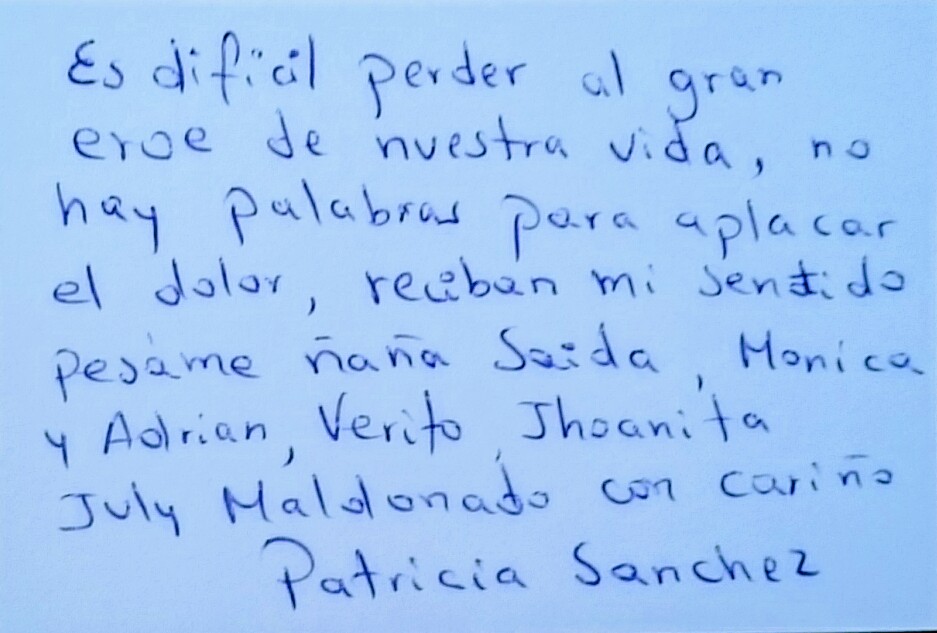 Es difícil perder al gran
eroe de nuestra vida, no
hay palabras para aplacar
el dolor, reciban mi sentido
pesáme ñaña Saida, Monica
y Adrian, Verito, Jhoanita
July Maldonado con cariño
Patricia Sanchez